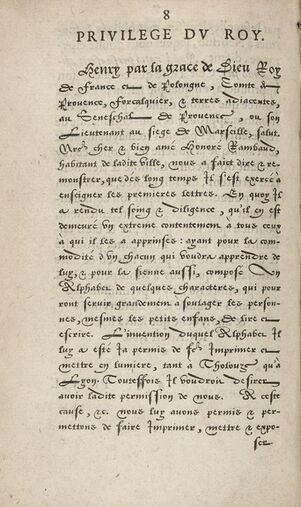 8
PRIVILEGE DV ROY.
Henry par la grace de Dieu Roy
de France & de Polongne, Comte de
Prouence, Forcalquier, & terres adiacentes,
au Seneschal de Prouence, ou son
Lieutenant au siege de Marseille, salut.
Nre cher & bien amé Honoré Rambaud,
habitant de ladite ville, nous a faict dire & re-
monstrer, que dés long temps Il s'est exercé a
enseigner les premieres lettres. En quoy Il
a rendu tel soing & diligence, qu'il en est
demeuré vn extreme contentement a tous ceux
a qui il les a apprinses: ayant pour la com-
modité d'vn chacun qui voudra apprendre de
luy, & pour la sienne aussi, composé vn
Alphabet de quelques characteres, qui pour
ront seruir grandement a soulager les person-
nes, mesmes les petits enfans, de lire &
escrire. L'inuention duquel Alphabet Il
luy a esté ja permis de fe. Imprimer &
mettre en lumiere, tant a Tholouze qu'a
Lyon. Toutesfois Il voudroit & desire
auoir ladite permission de nous. A ceste
cause, &c. nous luy auons permis & per-
mettons de faire Imprimer, mettre & expo-
ser